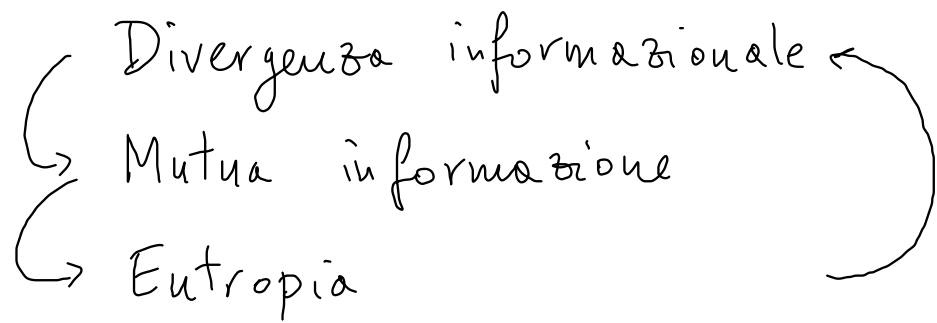 Divergenza informazionale
Mutua informazione
Entropia